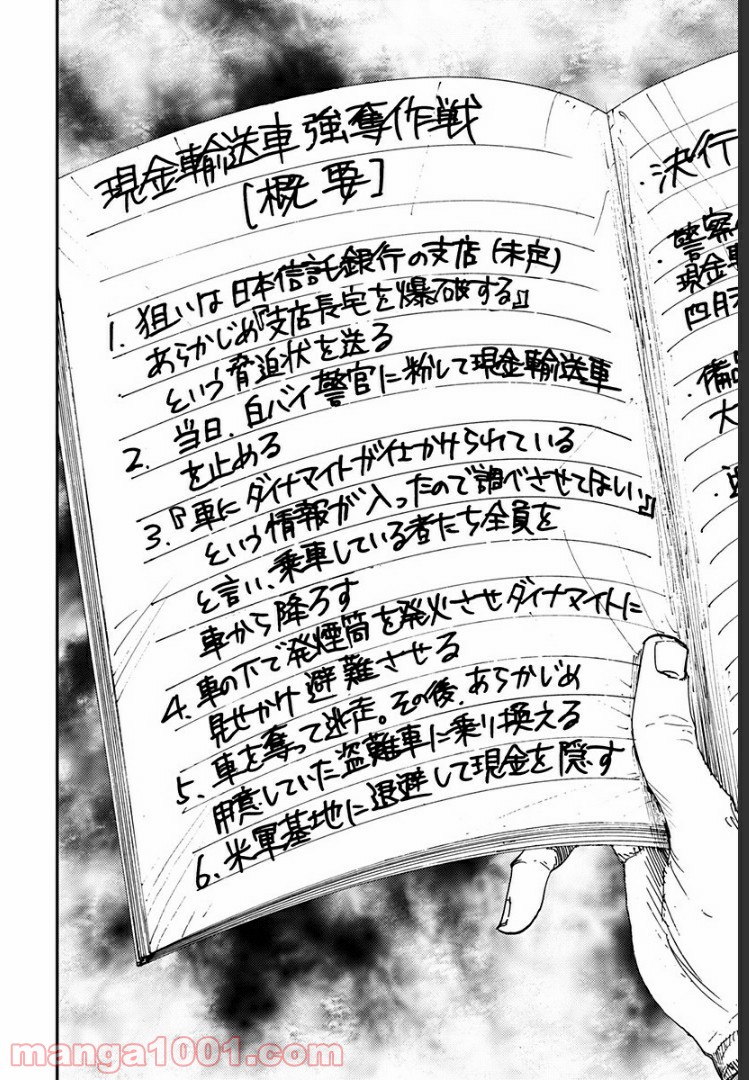 現金輸送車強奪作戦
[概要]
1. 狙いは日本信託銀行の支店(未定)
あらかじめ『支店長宅を爆破する』
という脅迫状を送る
2. 当日、白バイ警官に粉して現金輸送車
を止める
3.『車にダイナマイトが仕かけられている
という情報が入ったので調べさせてほしい』
と言い、乗車している者たち全員を
車から降ろす
4. 車の下で発煙筒を発火させダイナマイトに
見せかけ避難させる
5. 車を奪って逃走。その後、あらかじめ
用意していた盗難車に乗り換える
6. 米軍基地に退避して現金を隠す
・決行
・警察
現金
四月
・備
大
manga1001.com